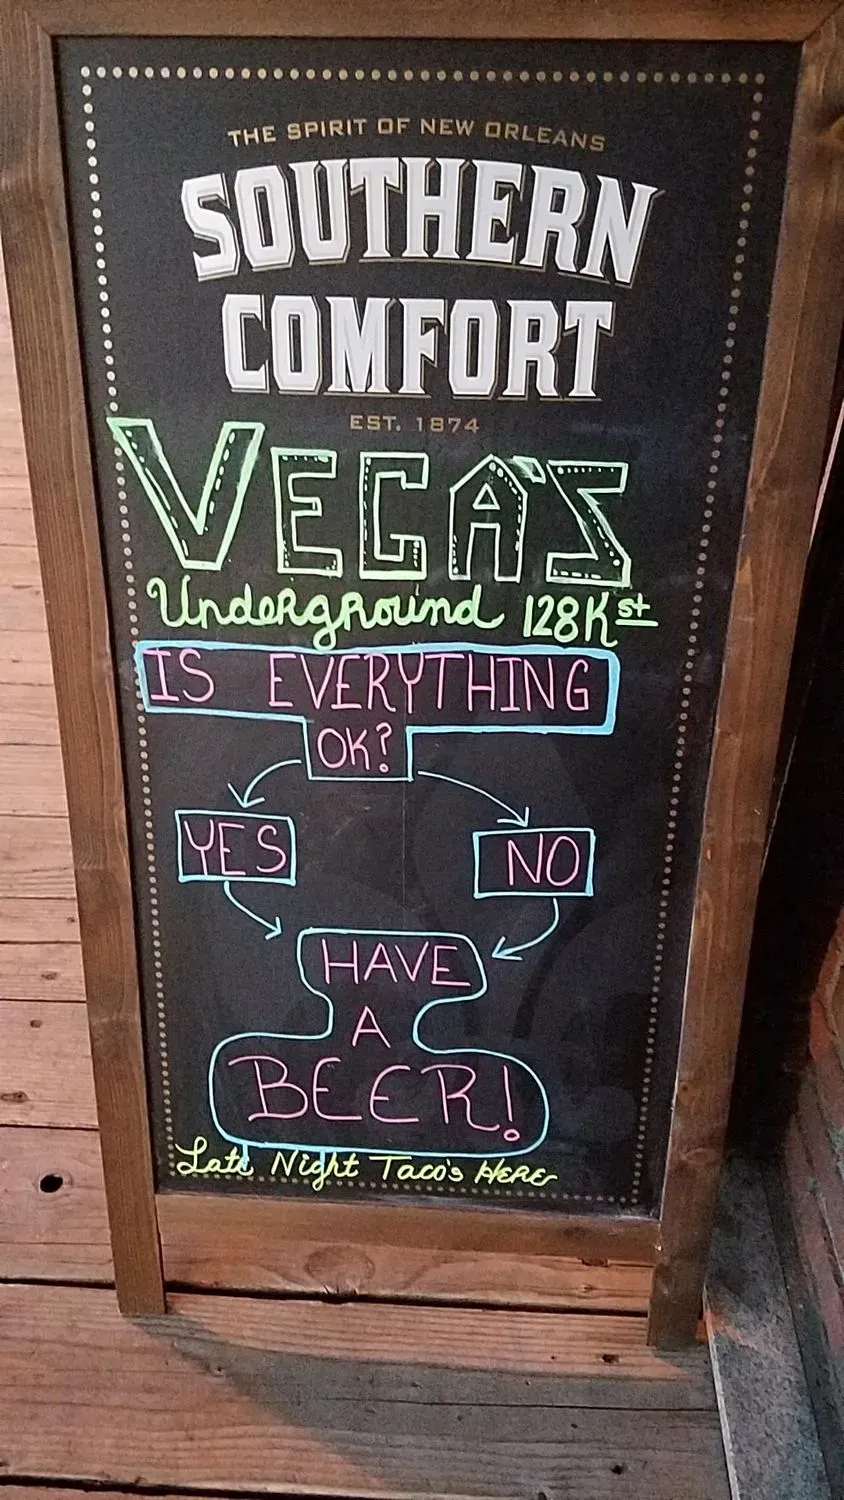 THE SPIRIT OF NEW ORLEANS
SOUTHERN
COMFORT
EST. 1874
VEGA'S
Underground 128 K st
IS EVERYTHING
OK?
YES NO
HAVE
A
BEER!
Late Night Taco's HERE